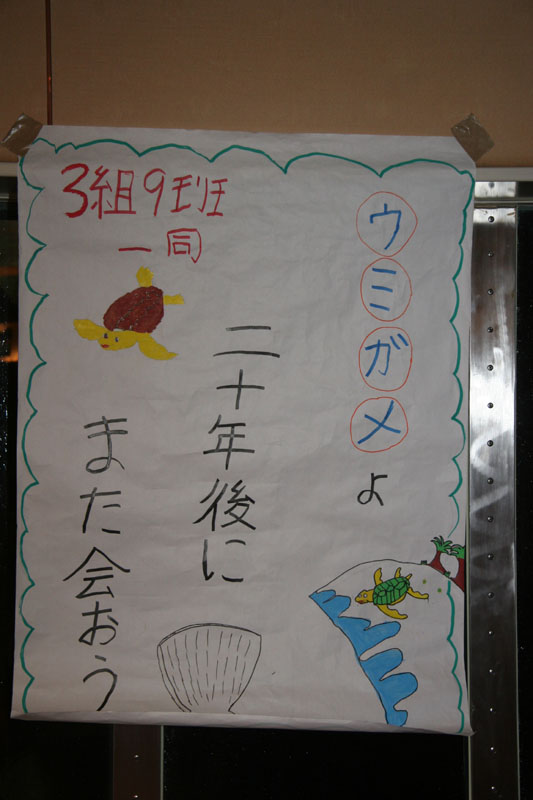 ウミガメよ
二十年後に
また会おう
3組9班
一同